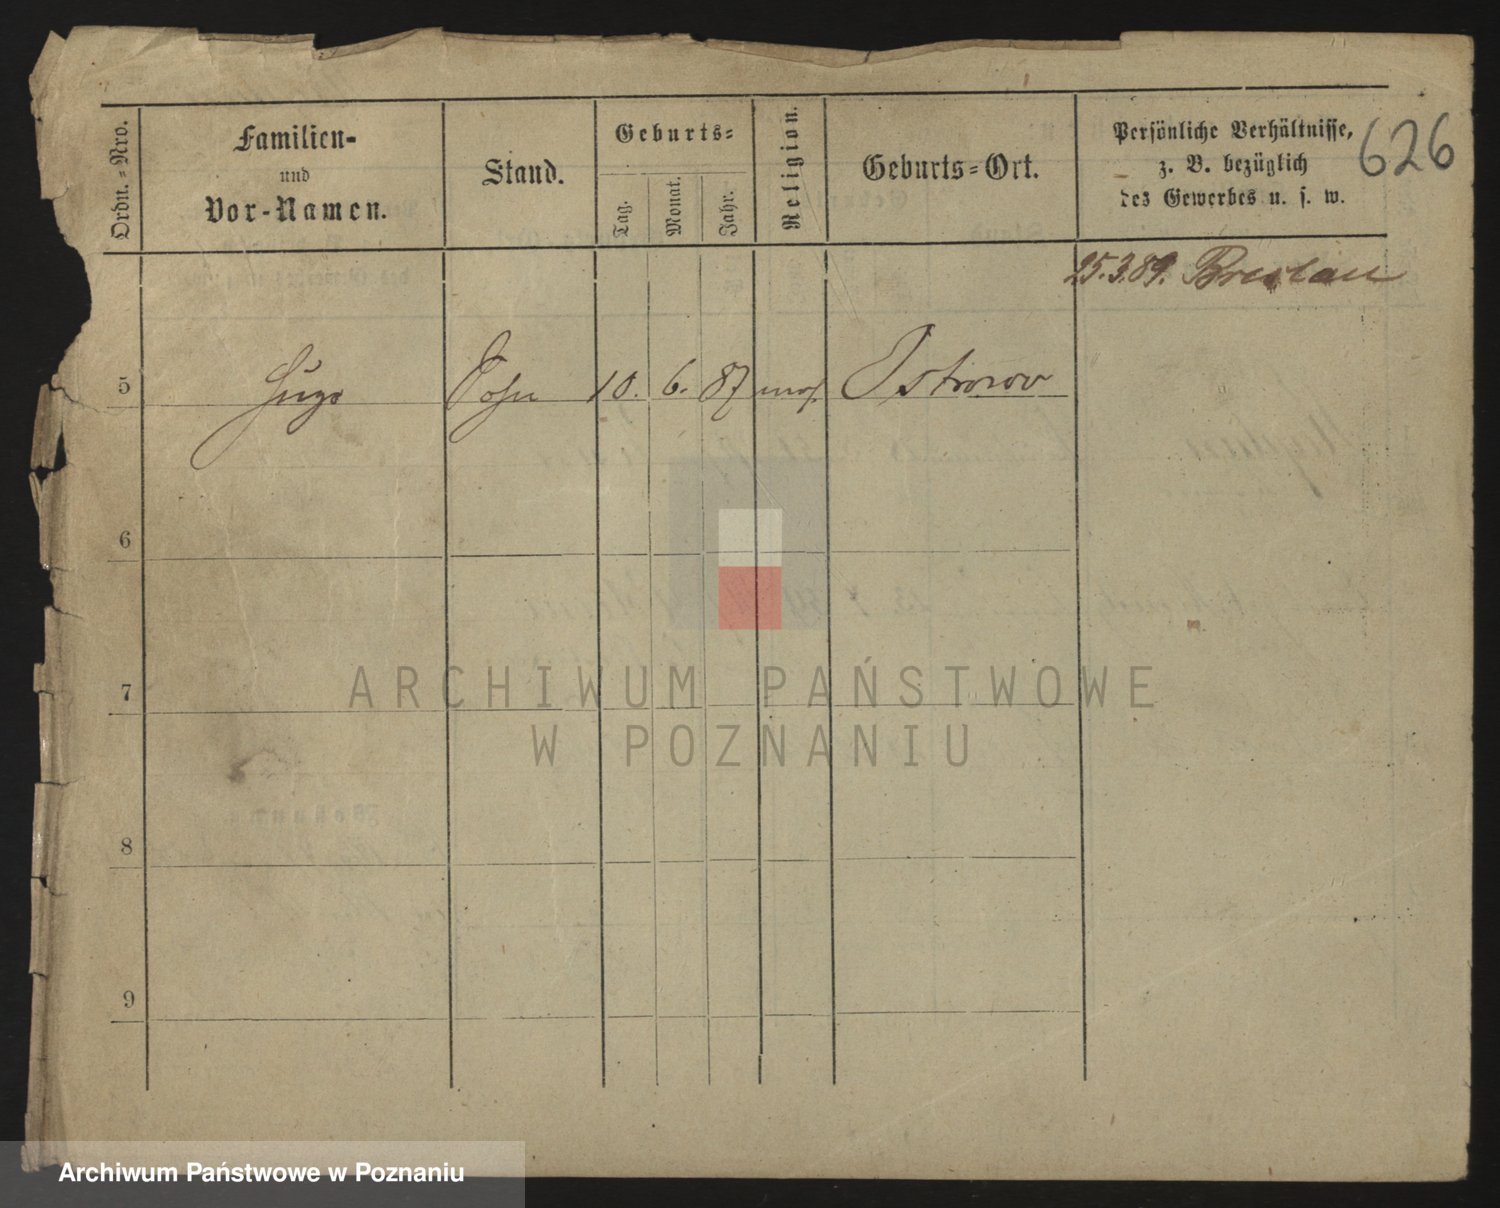 626
Ordn.-Nro.
Familien-
und
Vor-Namen.
Stand.
Geburts-
Tag.
Monat.
Jahr.
Religion.
Geburts-Ort.
Persönliche Verhältnisse,
z. B. bezüglich
des Gewerbes u. s. w.
25.3.89. Breslau
5 Hugo Sohn 10. 6. 87 mos. Ostrowo
6
7
8
9
ARCHIWUM PAŃSTWOWE
W POZNANIU
Archiwum Państwowe w Poznaniu